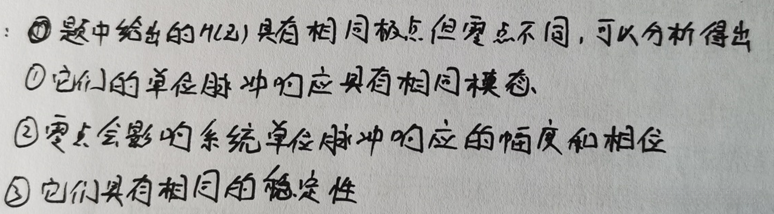 : ① 题中给出的H(Z)具有相同极点但零点不同,可以分析得出
①它们的单位脉冲响应具有相同模态、
②零点会影响系统单位脉冲响应的幅度和相位
③它们具有相同的稳定性